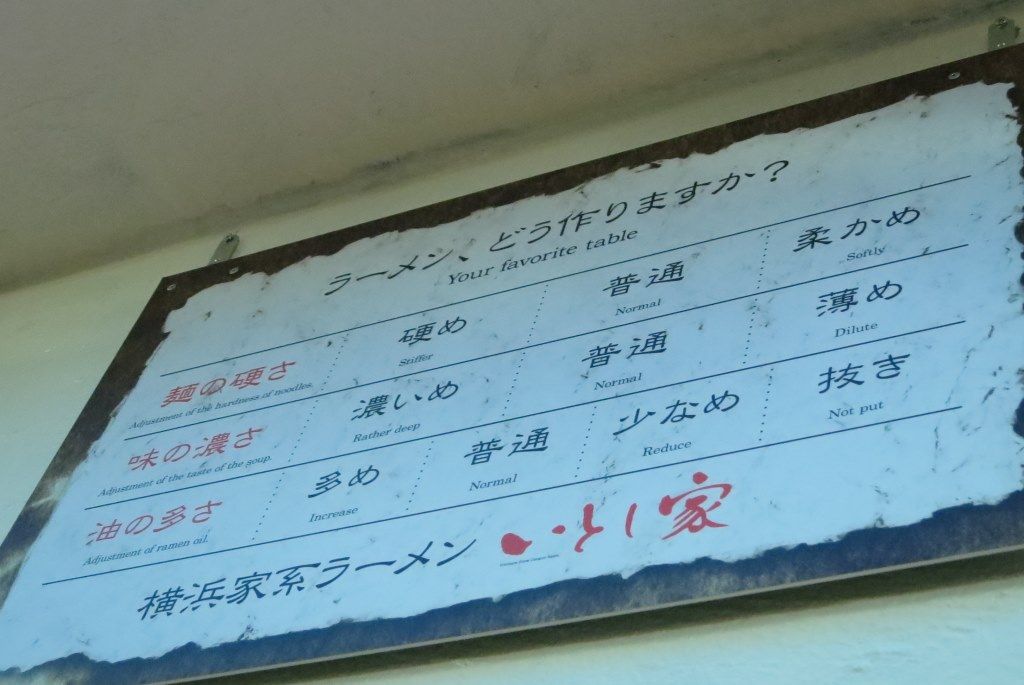 ラーメン、どう作りますか？
Your favorite table
麺の硬さ 硬め 普通 柔かめ
Adjustment of the hardness of noodles. Stiffer Normal Softly
味の濃さ 濃いめ 普通 薄め
Adjustment of the taste of the soup. Rather deep Normal Dilute
油の多さ 多め 普通 少なめ 抜き
Adjustment of ramen oil. Increase Normal Reduce Not put
横浜家系ラーメン いとし家